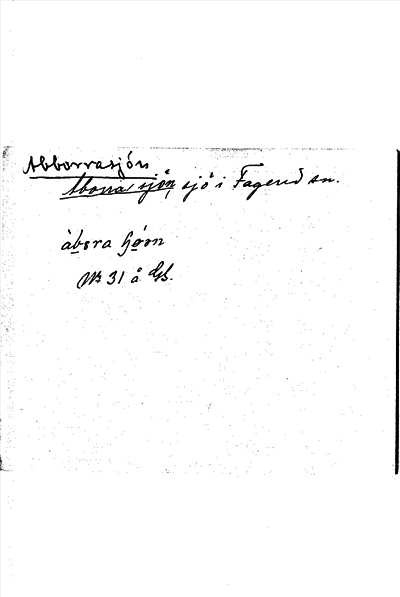 Abborrasjön
Aborra sjön, sjö i Fagered sn.
àbɛra
№ 31 å Gs.